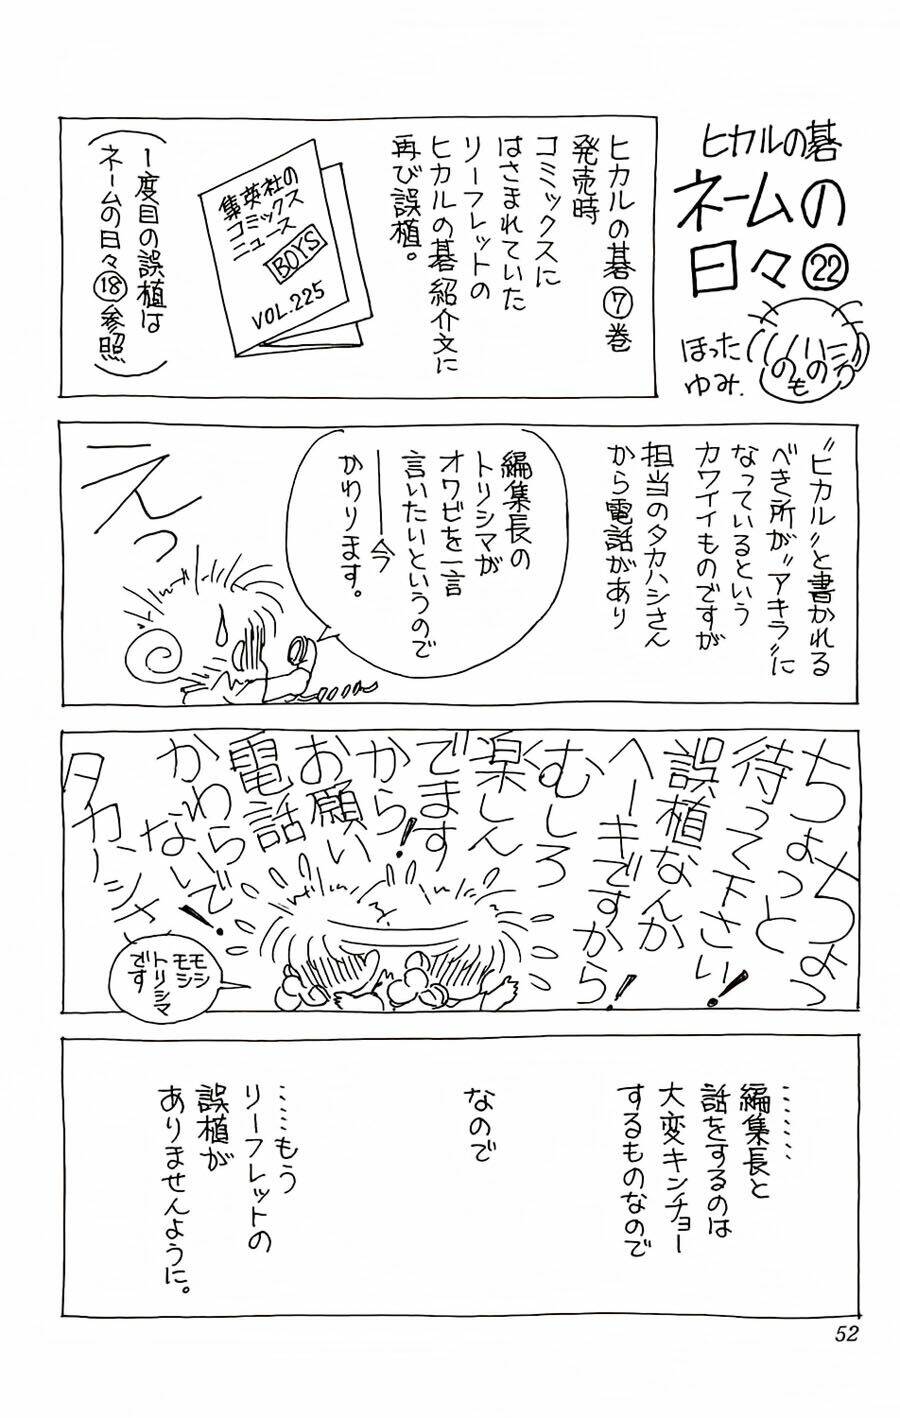 ヒカルの碁
ネームの
日々㉒
ほった
ゆみ.
ヒカルの碁⑦巻
発売時
コミックスに
はさまれていた
リーフレットの
ヒカルの碁紹介文に
再び誤植。
集英社の
コミックス
ニュース
BOYS
VOL.225
(1度目の誤植は
ネームの日々⑱参照)
〝ヒカル〟と書かれる
べき所が〝アキラ〟に
なっているという
カワイイものですが
担当のタカハシさん
から電話があり
編集長の
トリシマが
オワビを一言
言いたいというので
――今
かわります。
えっ
ちょちょっ
ちょっと
待って下さい!
誤植なんか
ヘーキですから!
むしろ
楽しん
でます
から!
お願い
電話
かわら
ないで!
タカハシさ
モシ
モシ
トリシマ
です
………
編集長と
話をするのは
大変キンチョー
するものなので
なので
……もう
リーフレットの
誤植が
ありませんように。
52